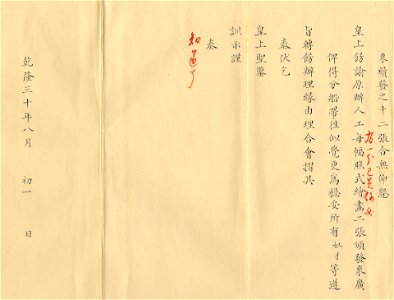 來續發之十二張合無仰懇
皇上飭諭原辦人工每幅照式繪畫二張頒發來廣
俾得分船帶往似覺更為穩妥所有奴才等遵
旨轉飭辦理緣由理合會摺具
奏伏乞
皇上聖鑒
訓示謹
奏
知道了
乾隆三十年八月 初一 日